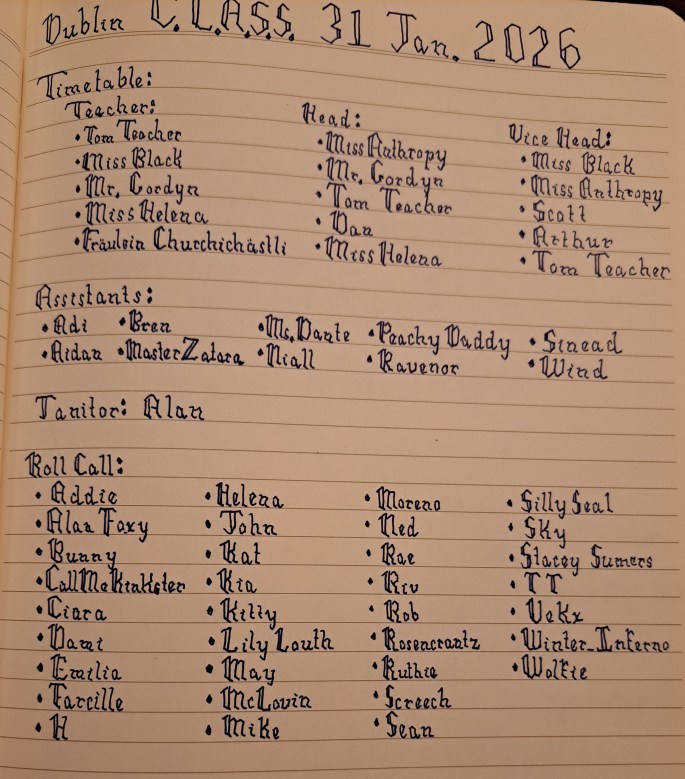 Dublin C.L.A.S.S. 31 Jan. 2026
Timetable:
Teacher:
• Tom Teacher
• Miss Black
• Mr. Cordyn
• Miss Helena
• Fräulein Churchichästli
Head:
• Miss Anthropy
• Mr. Cordyn
• Tom Teacher
• Dan
• Miss Helena
Vice Head:
• Miss Black
• Miss Anthropy
• Scott
• Arthur
• Tom Teacher
Assistants:
• Adi • Bren • Ms. Dante • Peachy Daddy • Sinead
• Aidan • Master Zatara • Niall • Ravenor • Wind
Janitor: Alan
Roll Call:
• Addie
• Alan Foxy
• Bunny
• CallMeKinkster
• Ciara
• Dami
• Emilia
• Farcille
• H
• Helena
• John
• Kat
• Kia
• Killy
• Lily Louth
• May
• McLovin
• Mike
• Moreno
• Ned
• Rae
• Riv
• Rob
• Rosencrantz
• Ruthie
• Screech
• Sean
• Silly Seal
• Sky
• Stacey Sumers
• TT
• VeKx
• Winter_Inferno
• Wolfie